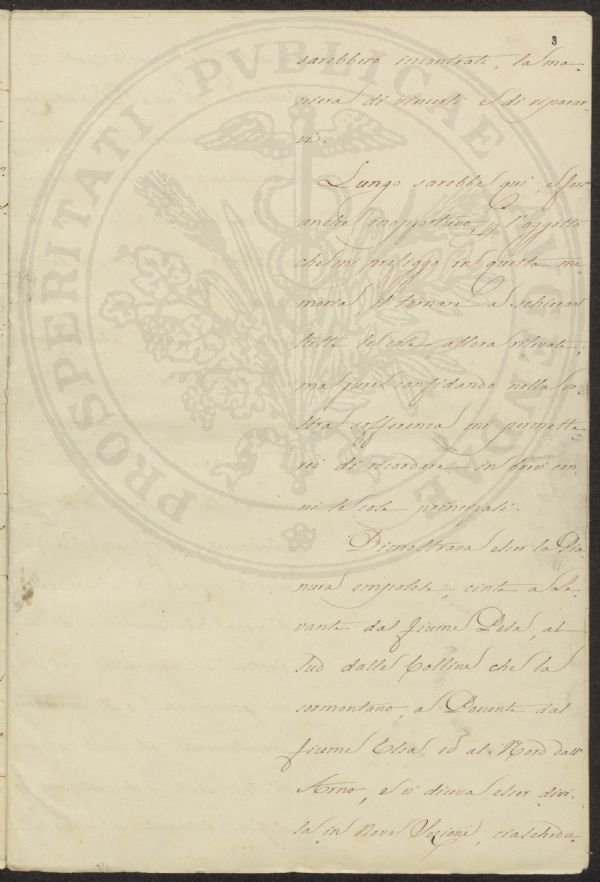 3
sarebbero incontrati, la ma-
niera di vincerli e di riparar-
vi.
Lungo sarebbe qui, e for
anche inopportuno, l'oggetto
che mi prefiggo in questa me-
moria, il tornare a schierar
tutte le cose allora rilevate;
ma pure confidando nella vo-
stra sofferenza mi permette-
rei di ricordare in brevi cen-
ni le cose principali.
Dimostrava esser la Pia-
nura empolese, cinta a Le-
vante dal fiume Pesa, al
Sud dalle Colline che la
sormontano, a Ponente dal
fiume Elsa ed al Nord dall'
Arno, e vi diceva esser divi-
sa in Nove Sezioni, ciaschedu-
PROSPERITATI PVBLICAE AVGENDAE